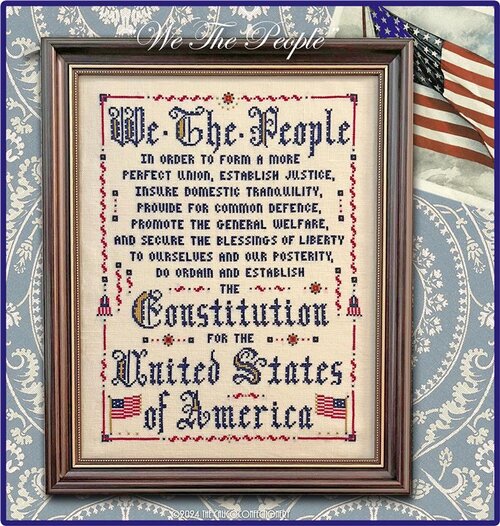 We The People
We·The·People
IN ORDER TO FORM A MORE
PERFECT UNION, ESTABLISH JUSTICE,
INSURE DOMESTIC TRANQUILITY,
PROVIDE FOR COMMON DEFENCE,
PROMOTE THE GENERAL WELFARE,
AND SECURE THE BLESSINGS OF LIBERTY
TO OURSELVES AND OUR POSTERITY,
DO ORDAIN AND ESTABLISH
THE
Constitution
FOR THE
United States
of America
©2024 THE CALICO CONFECTIONERY